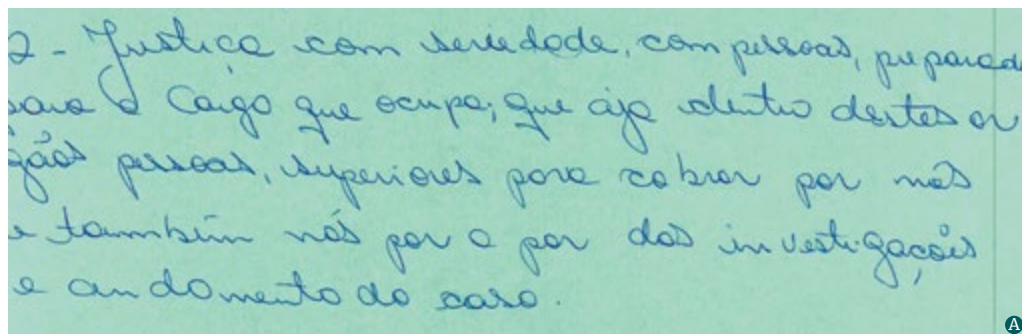 2 - Justiça com seriedade, com pessoas, preparad
para o Cargo que ocupa; que aja dentro destes or
gãos pessoas, superiores para cobrar por nós
e também nós por a par das investigações
e andamento do caso.
A